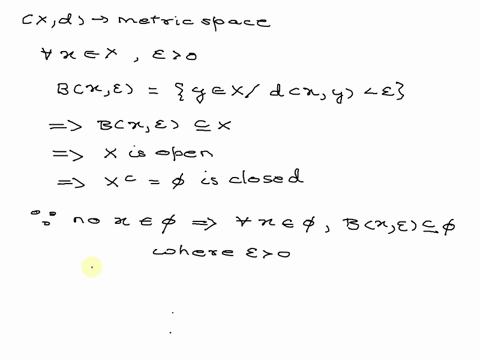 (X,d) → metric space
∀ x ∈ X , ε>0
B(x,ε) = {y∈X/ d(x,y) <ε}
=> B(x,ε) ⊆ X
=> X is open
=> Xᶜ = ϕ is closed
∵ no x ∈ ϕ => ∀ x ∈ ϕ , B(x,ε) ⊆ ϕ
where ε>0